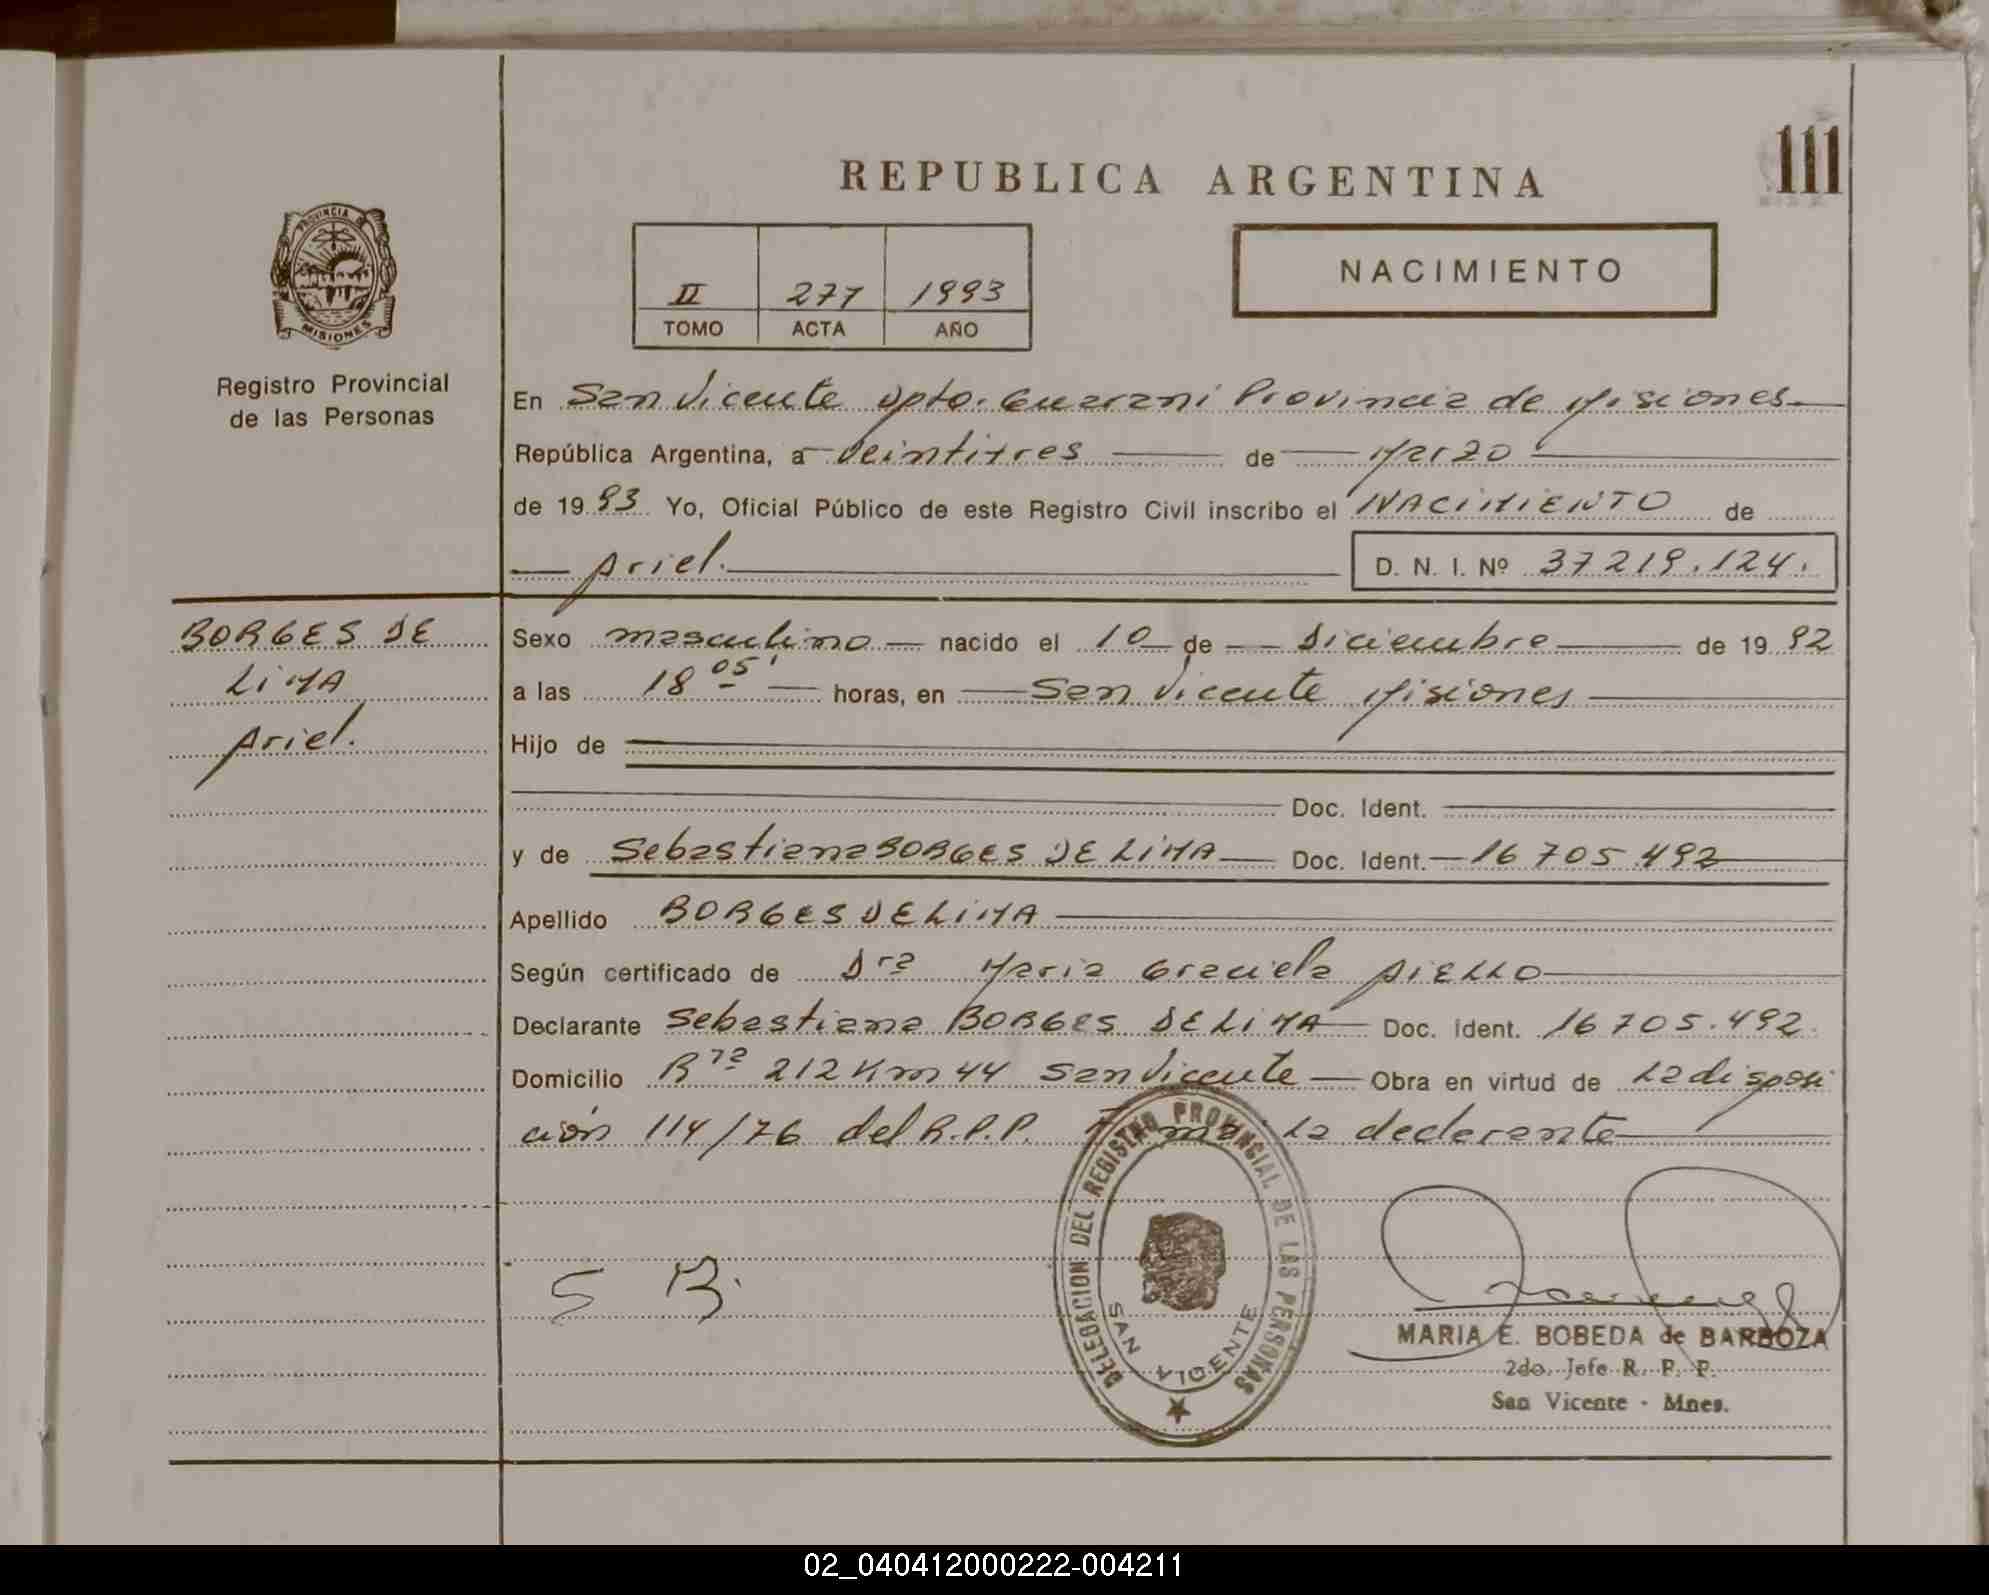 111
REPUBLICA ARGENTINA
PROVINCIA DE MISIONES
Registro Provincial
de las Personas
II 277 1993
TOMO ACTA AÑO
NACIMIENTO
En San Vicente Dpto. Guarani Provincia de Misiones
República Argentina, a veintitres de Marzo
de 1993 Yo, Oficial Público de este Registro Civil inscribo el NACIMIENTO de
Ariel. D. N. I. Nº 37219.124.
BORGES DE
LIMA
Ariel.
Sexo masculino nacido el 10 de Diciembre de 1992
a las 18 05' horas, en San Vicente Misiones
Hijo de
Doc. Ident.
y de Sebastiana BORGES DE LIMA Doc. Ident. 16 705 492
Apellido BORGES DE LIMA
Según certificado de Dra Maria Graciela AIELLO
Declarante Sebastiana BORGES DE LIMA Doc. Ident. 16 705.492.
Domicilio Rta 212 Km 44 San Vicente Obra en virtud de La disposi
ción 114/76 del R.P.P. Firma La declarante
S B.
DELEGACION DEL REGISTRO PROVINCIAL DE LAS PERSONAS
SAN VICENTE
MARIA E. BOBEDA de BARBOZA
2do. Jefe R. P. P.
San Vicente - Mnes.
02_040412000222-004211